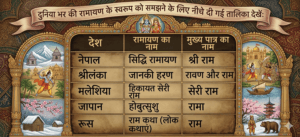 दुनिया भर की रामायण के स्वरूप को समझने के लिए नीचे दी गई तालिका देखें:
देश रामायण का नाम मुख्य पात्र का नाम
नेपाल सिद्धि रामायण श्री राम
श्रीलंका जानकी हरण रावण और राम
मलेशिया हिकायत सेरी राम सेरी राम
जापान होबुत्सुशु रामा
रूस राम कथा (लोक कथाएं) राम